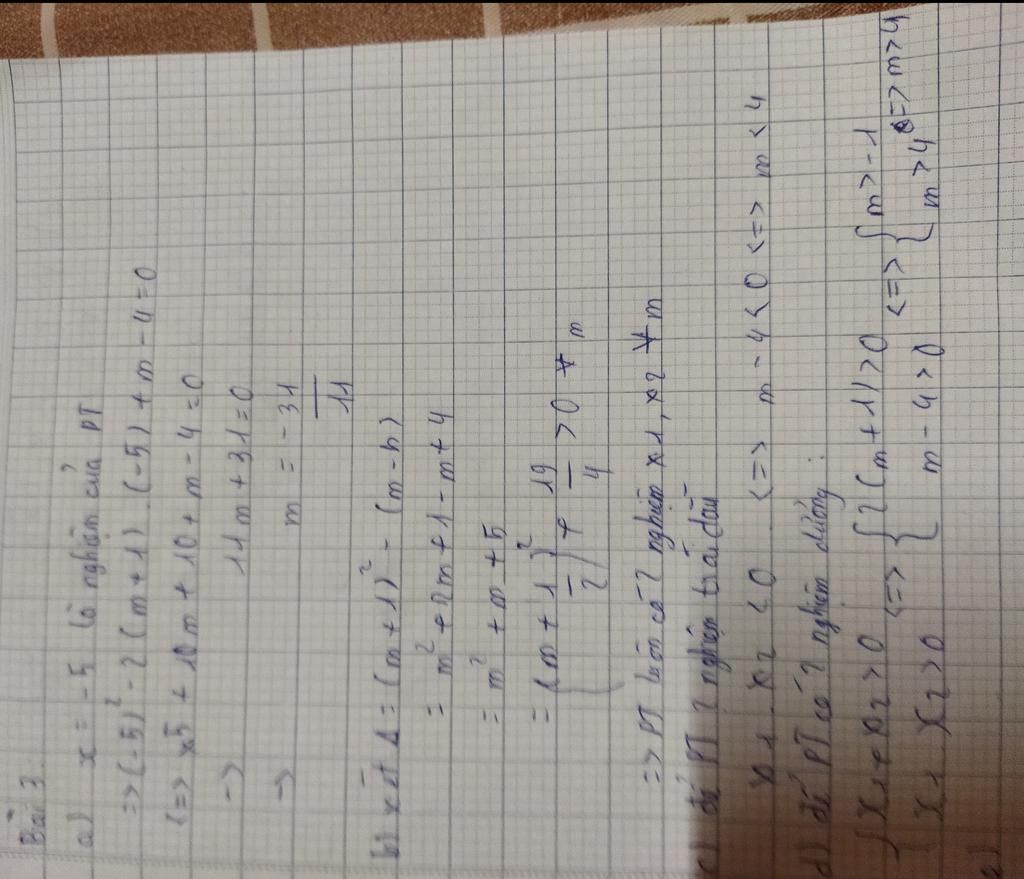 Bài 3
a) x = -5 là nghiệm của PT
=> (-5)² - 2(m+1).(-5) + m - 4 = 0
<=> 25 + 10m + 10 + m - 4 = 0
-> 11m + 31 = 0
-> m = -31/11
b) xét Δ = (m+1)² - (m-4)
= m² + 2m + 1 - m + 4
= m² + m + 5
= (m + 1/2)² + 19/4 > 0 ∀ m
=> PT luôn có 2 nghiệm x1, x2 ∀ m
c) để PT 2 nghiệm trái dấu
x1 . x2 < 0 <=> m - 4 < 0 <=> m < 4
d) để PT có 2 nghiệm dương:
{ x1 + x2 > 0 <=> { 2(m+1) > 0 <=> { m > -1
x1 . x2 > 0 m - 4 > 0 m > 4 <=> m > 4
e)